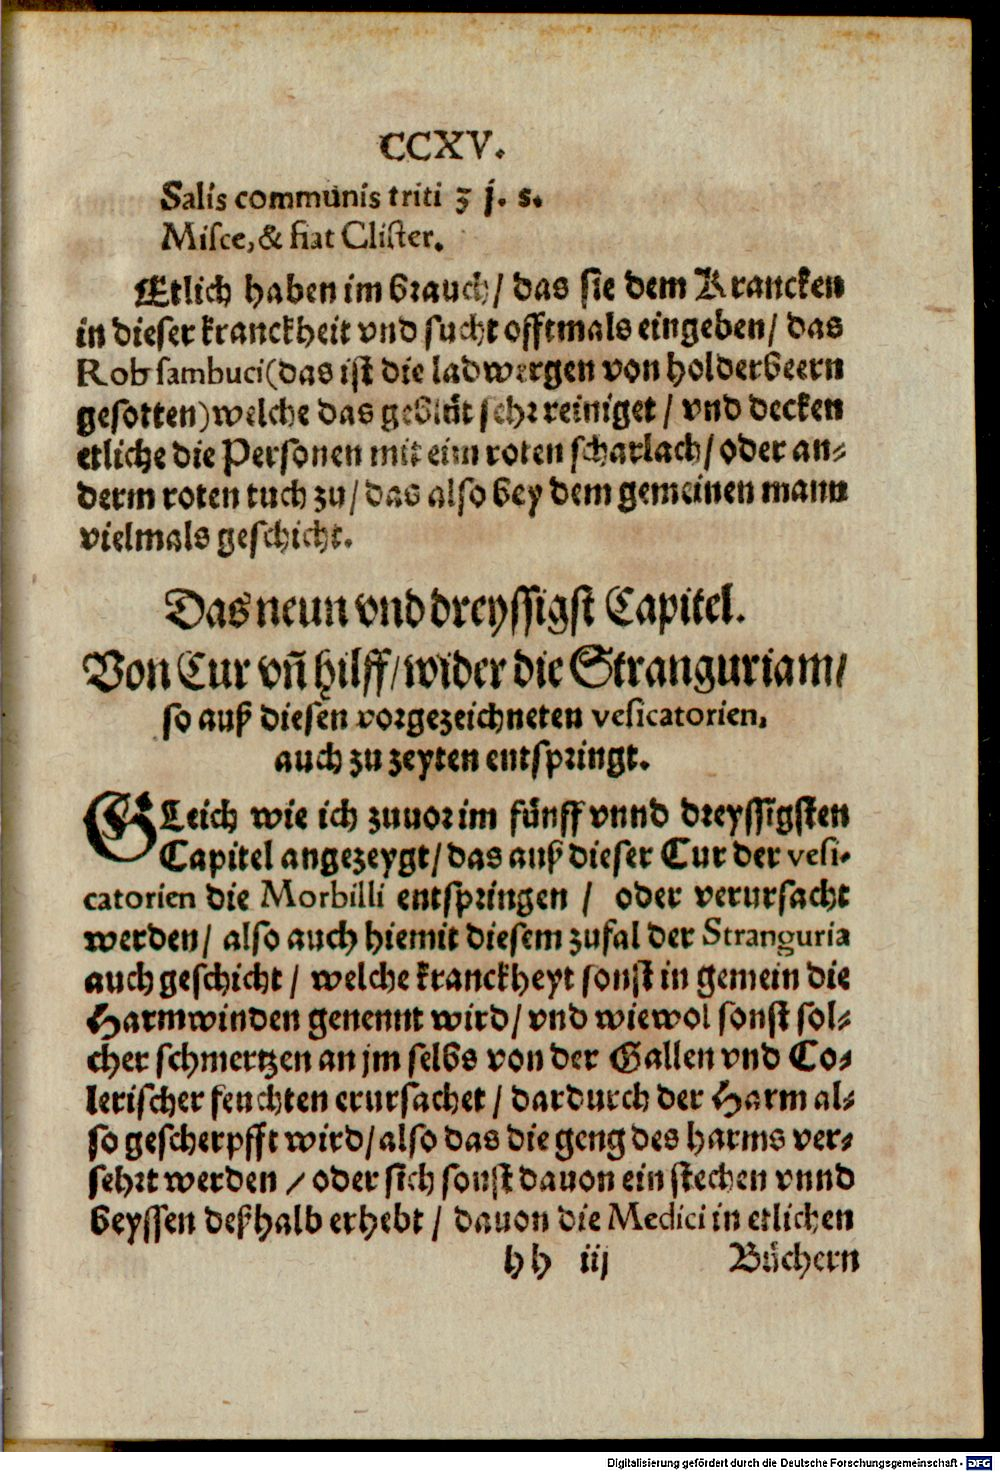 CCXV.
Salis communis triti ʒ j. s.
Misce, & fiat Clister.
Etlich haben im brauch / das sie dem Krancken
in dieser kranckheit vnd sucht offtmals eingeben / das
Rob sambuci (das ist die ladwergen von holderbeern
gesotten) welche das geblüt sehr reiniget / vnd decken
etliche die Personen mit eim roten scharlach / oder an-
derm roten tuch zu / das also bey dem gemeinen mann
vielmals geschicht.
Das neun vnd dreyssigst Capitel.
Von Cur vñ hilff / wider die Stranguriam /
so auß diesen vorgezeichneten vesicatorien,
auch zu zeyten entspringt.
GLeich wie ich zuuor im fünff vnnd dreyssigsten
Capitel angezeygt / das auß dieser Cur der vesi-
catorien die Morbilli entspringen / oder verursacht
werden / also auch hiemit diesem zufal der Stranguria
auch geschicht / welche kranckheyt sonst in gemein die
Harmwinden genennt wird / vnd wiewol sonst sol-
cher schmertzen an jm selbs von der Gallen vnd Co-
lerischer feuchten erursachet / dardurch der Harm al-
so gescherpfft wird / also das die geng des harms ver-
sehrt werden / oder sich sonst dauon ein stechen vnnd
beyssen deßhalb erhebt / dauon die Medici in etlichen
hh iij Büchern
Digitalisierung gefördert durch die Deutsche Forschungsgemeinschaft - DFG